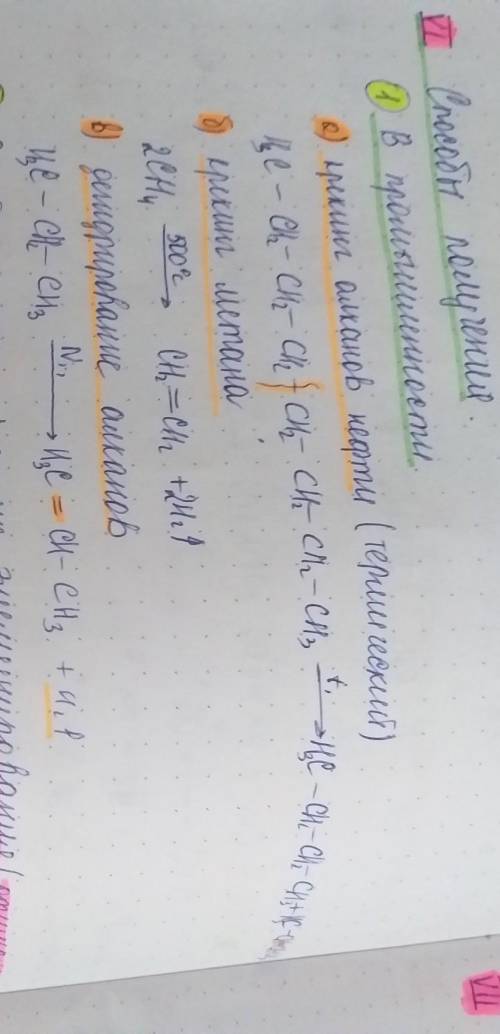 VI Способы получения.
1 В промышленности.
а) крекинг алканов нефти (термический)
H3C – CH2 – CH2 – CH2 + CH2 – CH2 – CH2 – CH3 t, → H3C – CH2 – CH2 – CH3 +
б) крекинг метана
2CH4 500°C → CH2 = CH2 + 2H2↑
в) дегидрирование алканов
H3C – CH2 – CH3 Ni, → H2C = CH – CH3 + H2↑
VII